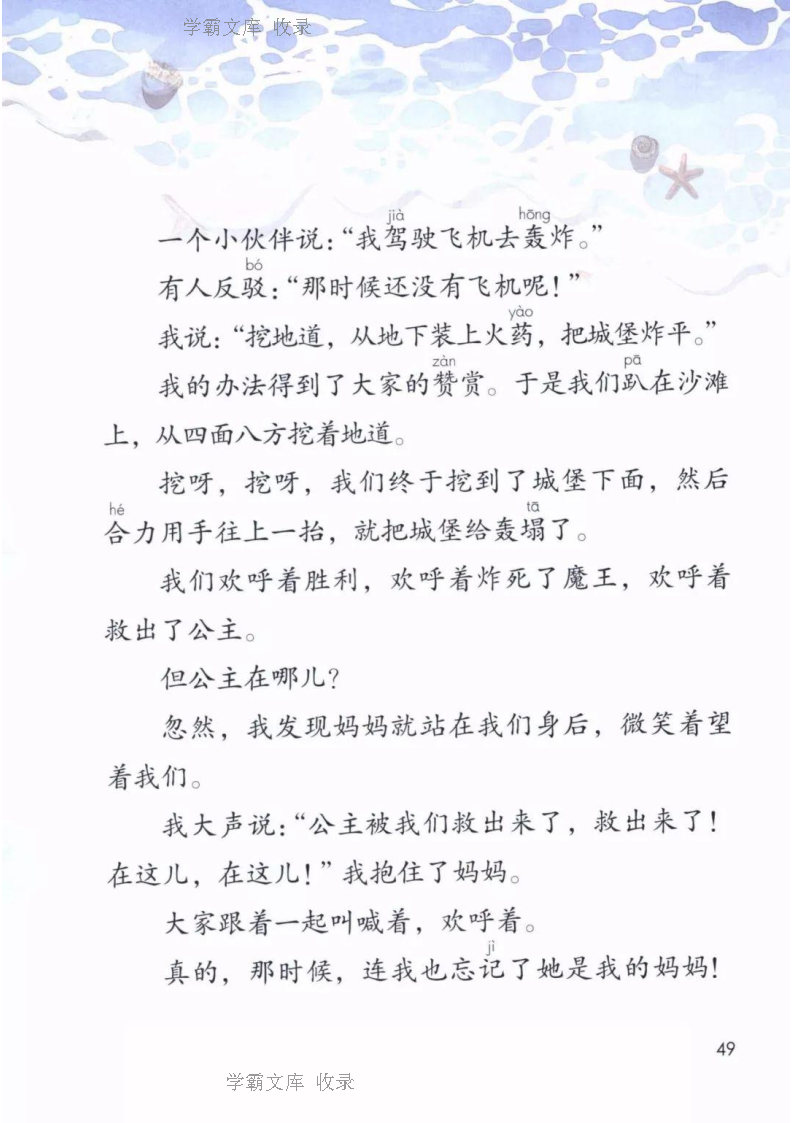 学霸文库 收录
jià hōng
一个小伙伴说：“我驾驶飞机去轰炸。”
bó
有人反驳：“那时候还没有飞机呢！”
yào
我说：“挖地道，从地下装上火药，把城堡炸平。”
zàn pā
我的办法得到了大家的赞赏。于是我们趴在沙滩
上，从四面八方挖着地道。
挖呀，挖呀，我们终于挖到了城堡下面，然后
hé tā
合力用手往上一抬，就把城堡给轰塌了。
我们欢呼着胜利，欢呼着炸死了魔王，欢呼着
救出了公主。
但公主在哪儿？
忽然，我发现妈妈就站在我们身后，微笑着望
着我们。
我大声说：“公主被我们救出来了，救出来了！
在这儿，在这儿！”我抱住了妈妈。
大家跟着一起叫喊着，欢呼着。
jì
真的，那时候，连我也忘记了她是我的妈妈！
49
学霸文库 收录